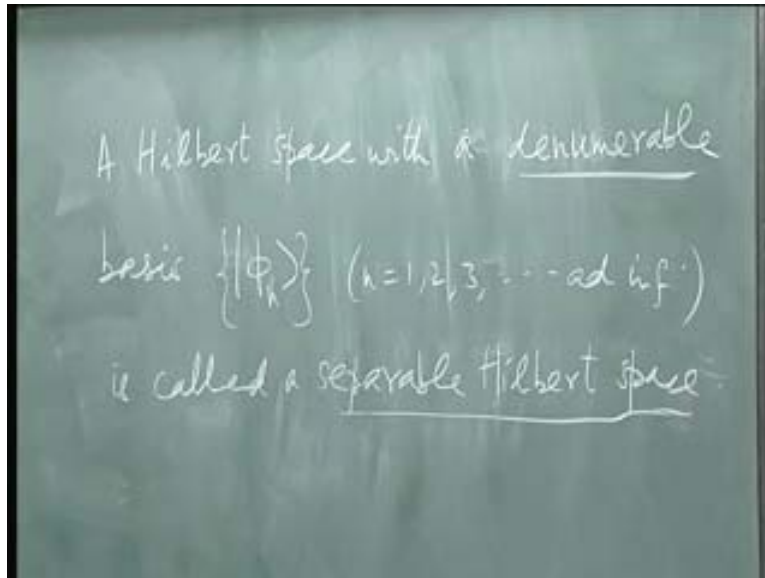 A Hilbert space with a denumerable
basis {|ϕₙ⟩} (n=1,2,3, ---- ad inf.)
is called a separable Hilbert space.